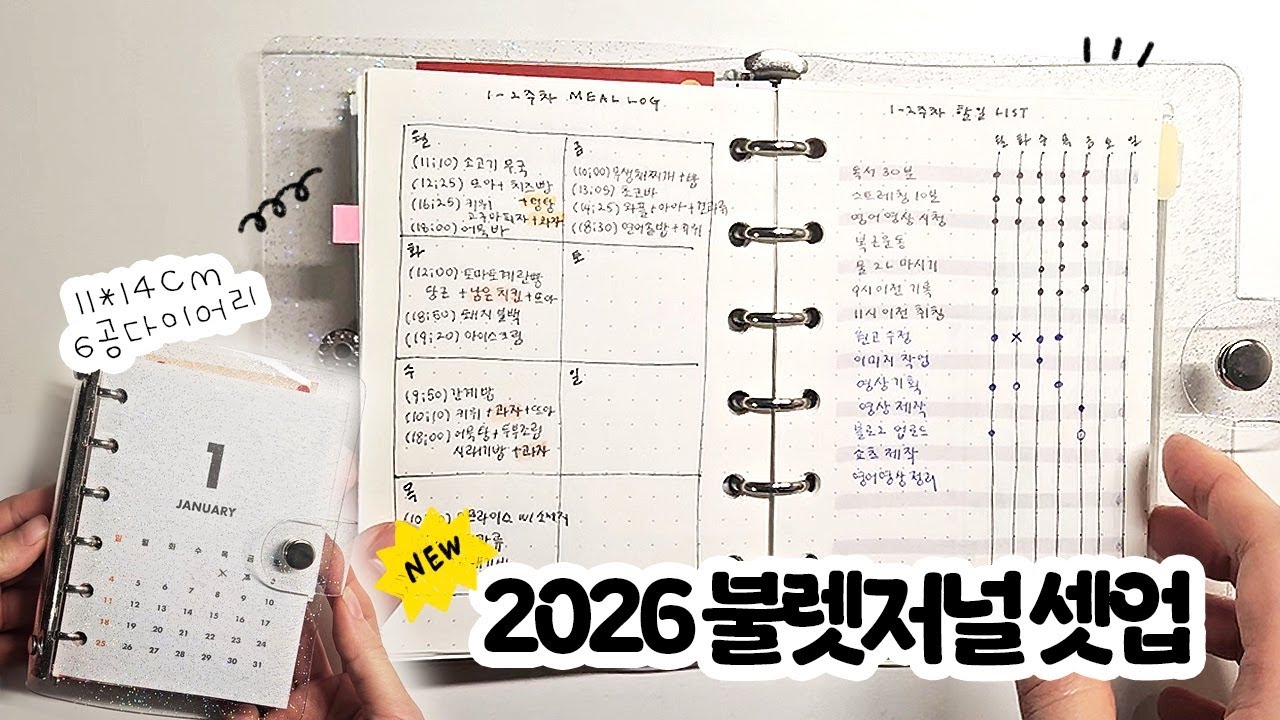 1-2주차 MEAL LOG
월
(11:10) 소고기 무국
(12:25) 또아+치즈빵
(16:25) 키위 +과자
(18:00) 어묵바
화
당근 +남은 치킨+또아
(18:50) 돼지
(19:20) 아이스크림
수
(9:50) 간계밥
(10:10) 키위+과자+또아
(18:00) 어묵탕+두부조림
시래기밥+과자
목
금
(13:05) 초코바
(14:25) 와플+아아+견과류
(18:30) 연어초밥+키위
토
일
1-2주차 할일 LIST
월 화 수 목 금 토 일
독서 30분
스트레칭 10분
영어 영상 시청
물 2L 마시기
9시 이전 기록
11시 이전 취침
원고 수정
이미지 작업
영상 기획
영상 제작
블로그 업로드
쇼츠 제작
영어영상 정리
11*14CM
6공다이어리
1
JANUARY
일 월 화 수 목 금
4 5 6 7 8 9 10
11 12 13 14 15 16 17
18 19 20 21 22 23 24
25 26 27 28 29 30 31
NEW
2026 불렛저널 셋업